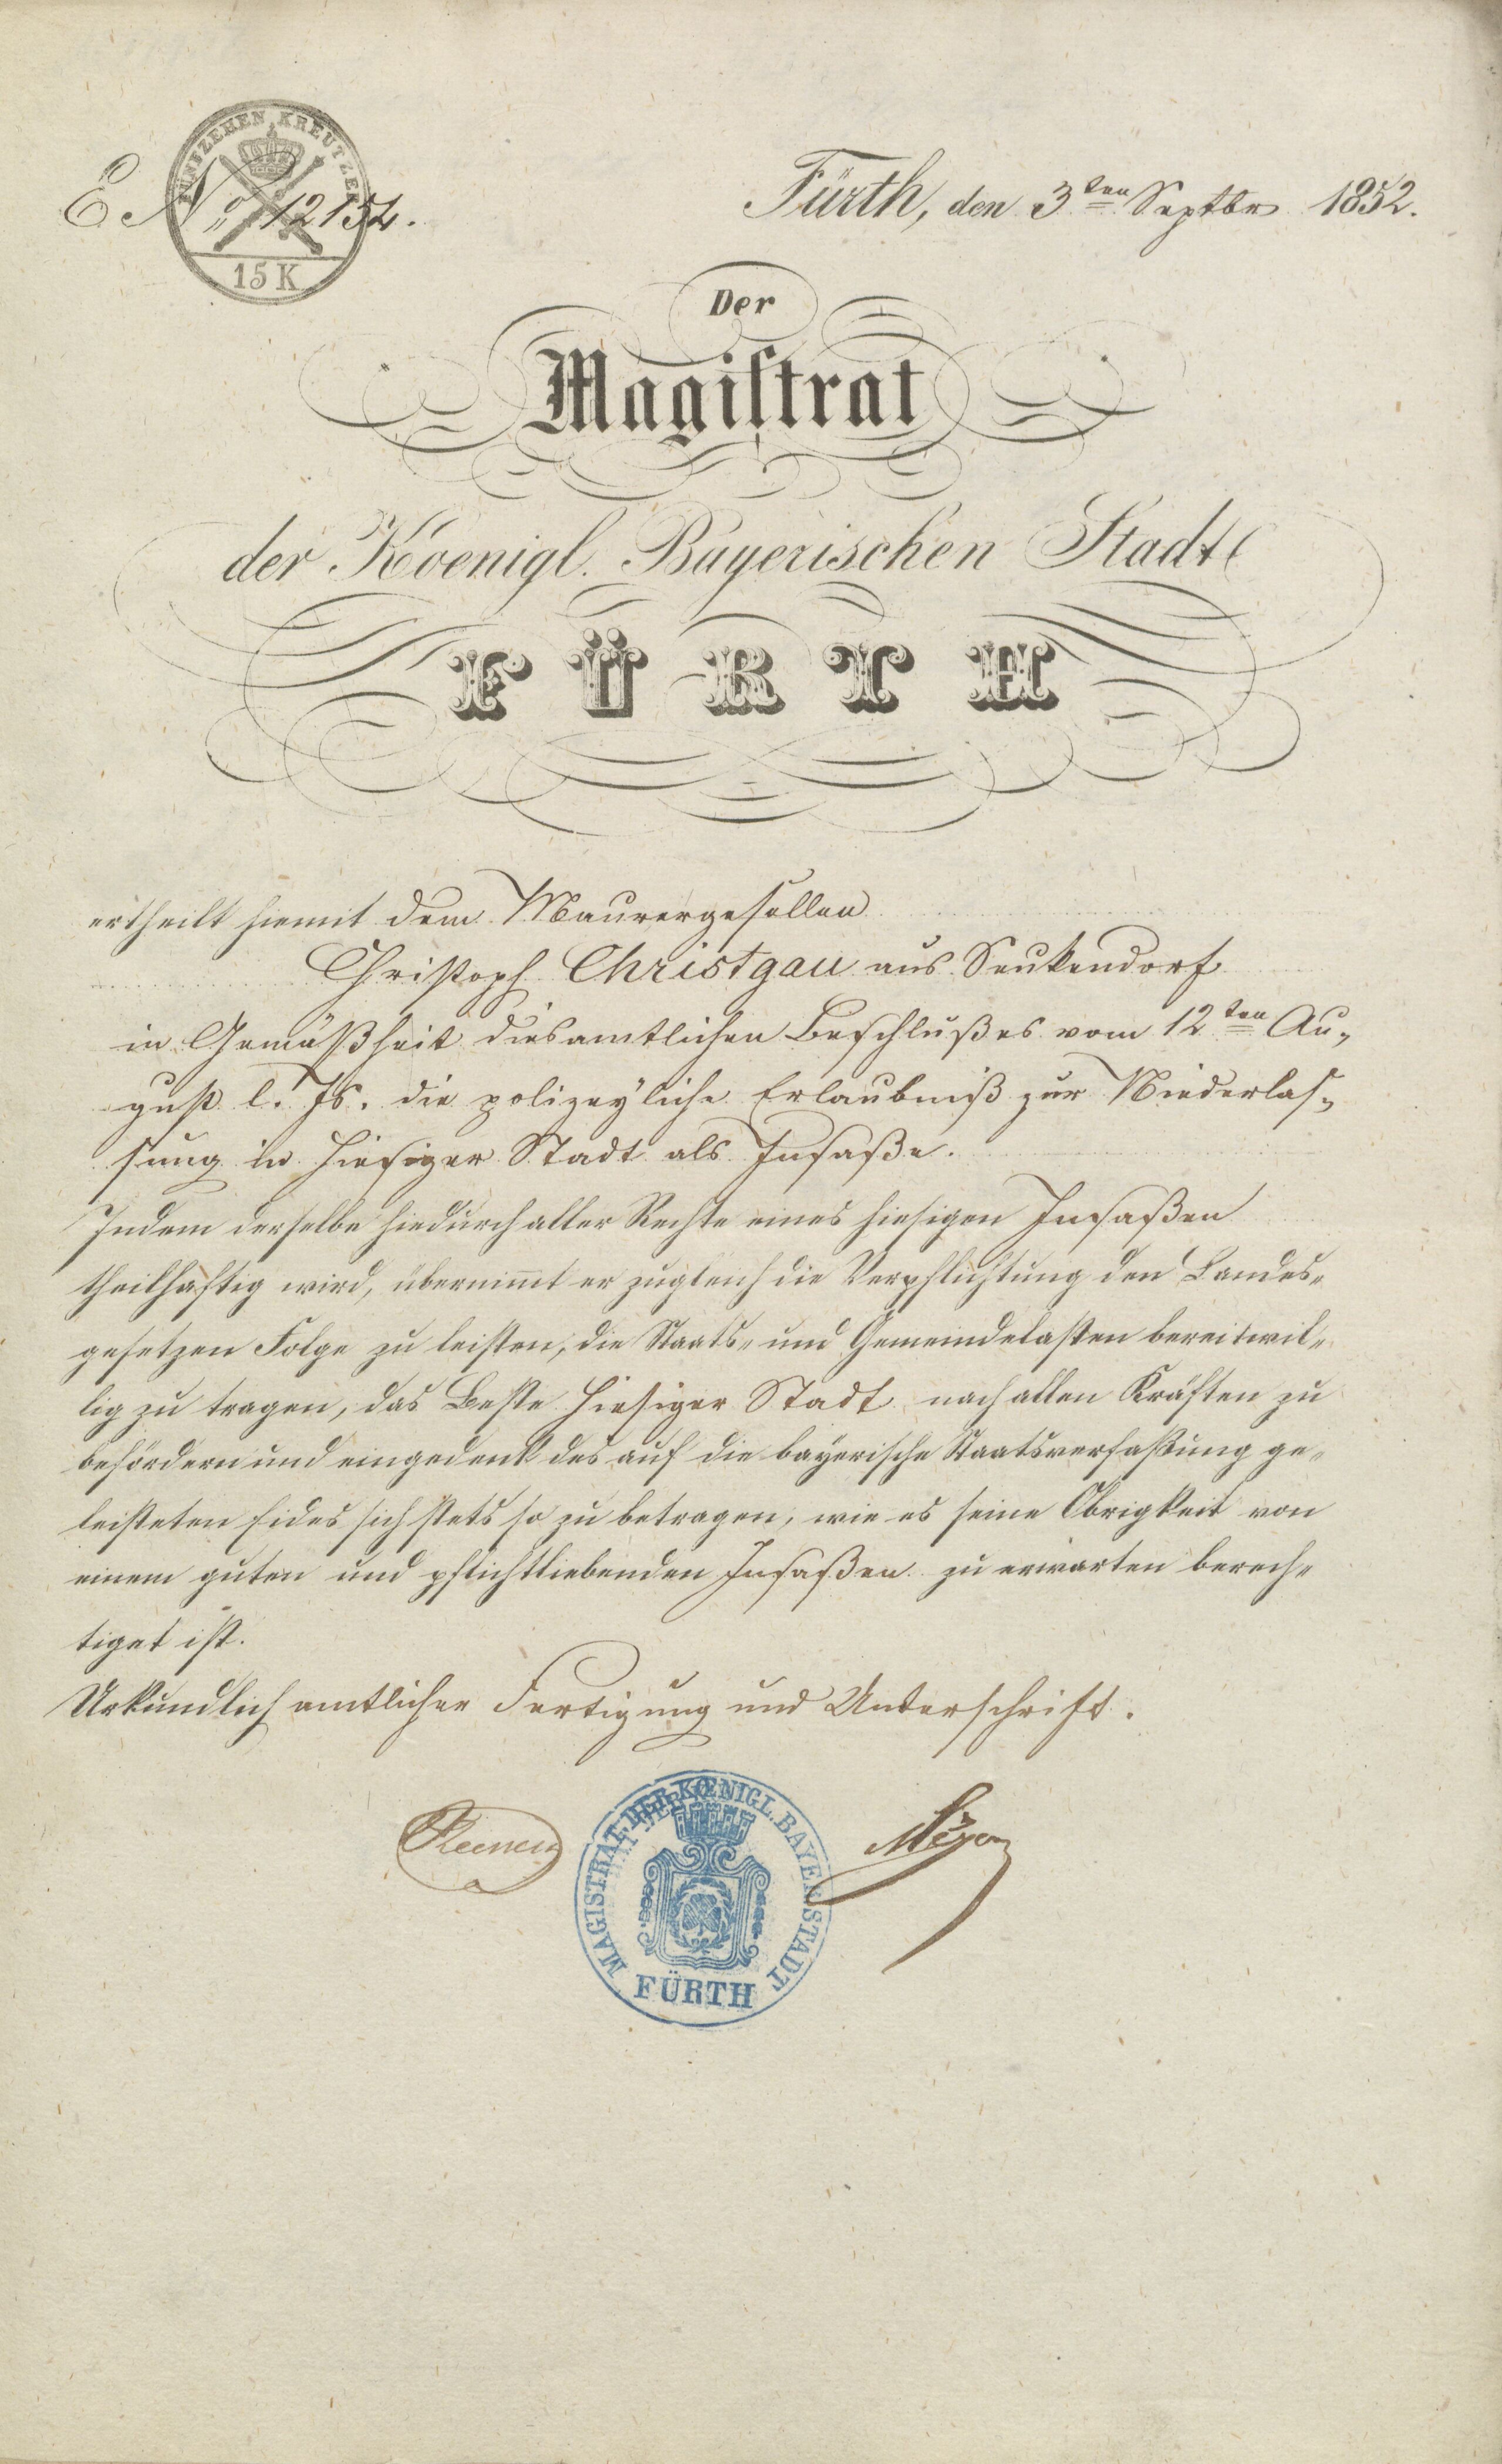 FÜNFZEHEN KREUTZER
E. No. 12154.
15 K
Fürth, den 3ten Septbr 1852.
Der
Magiſtrat
der Koenigl. Bayerischen Stadt
FÜRTH
ertheilt hiemit dem Maurergesellen
Christoph Christgau aus Seukendorf
in Gemäßheit diesamtlichen Beschlußes vom 12ten Au„
gust l. Js. die polizeyliche Erlaubniß zur Niederlas„
sung in hiesiger Stadt als Insaße.
Indem derselbe hiedurch aller Rechte eines hiesigen Insaßen
theilhaftig wird, übernimmt er zugleich die Verpflichtung den Landes„
gesetzen Folge zu leisten, die Staats„ und Gemeindelasten bereitwil„
lig zu tragen, das Beste hiesiger Stadt nach allen Kräften zu
befördern und eingedenk des auf die bayerische Staatsverfaßung ge„
leisteten Eides sich stets so zu betragen, wie es seine Obrigkeit von
einem guten und pflichtliebenden Insaßen zu erwarten berech„
tiget ist.
Urkundlich amtlicher Fertigung und Unterschrift.
MAGISTRAT DER KŒNIGL. BAYER. STADT
FÜRTH